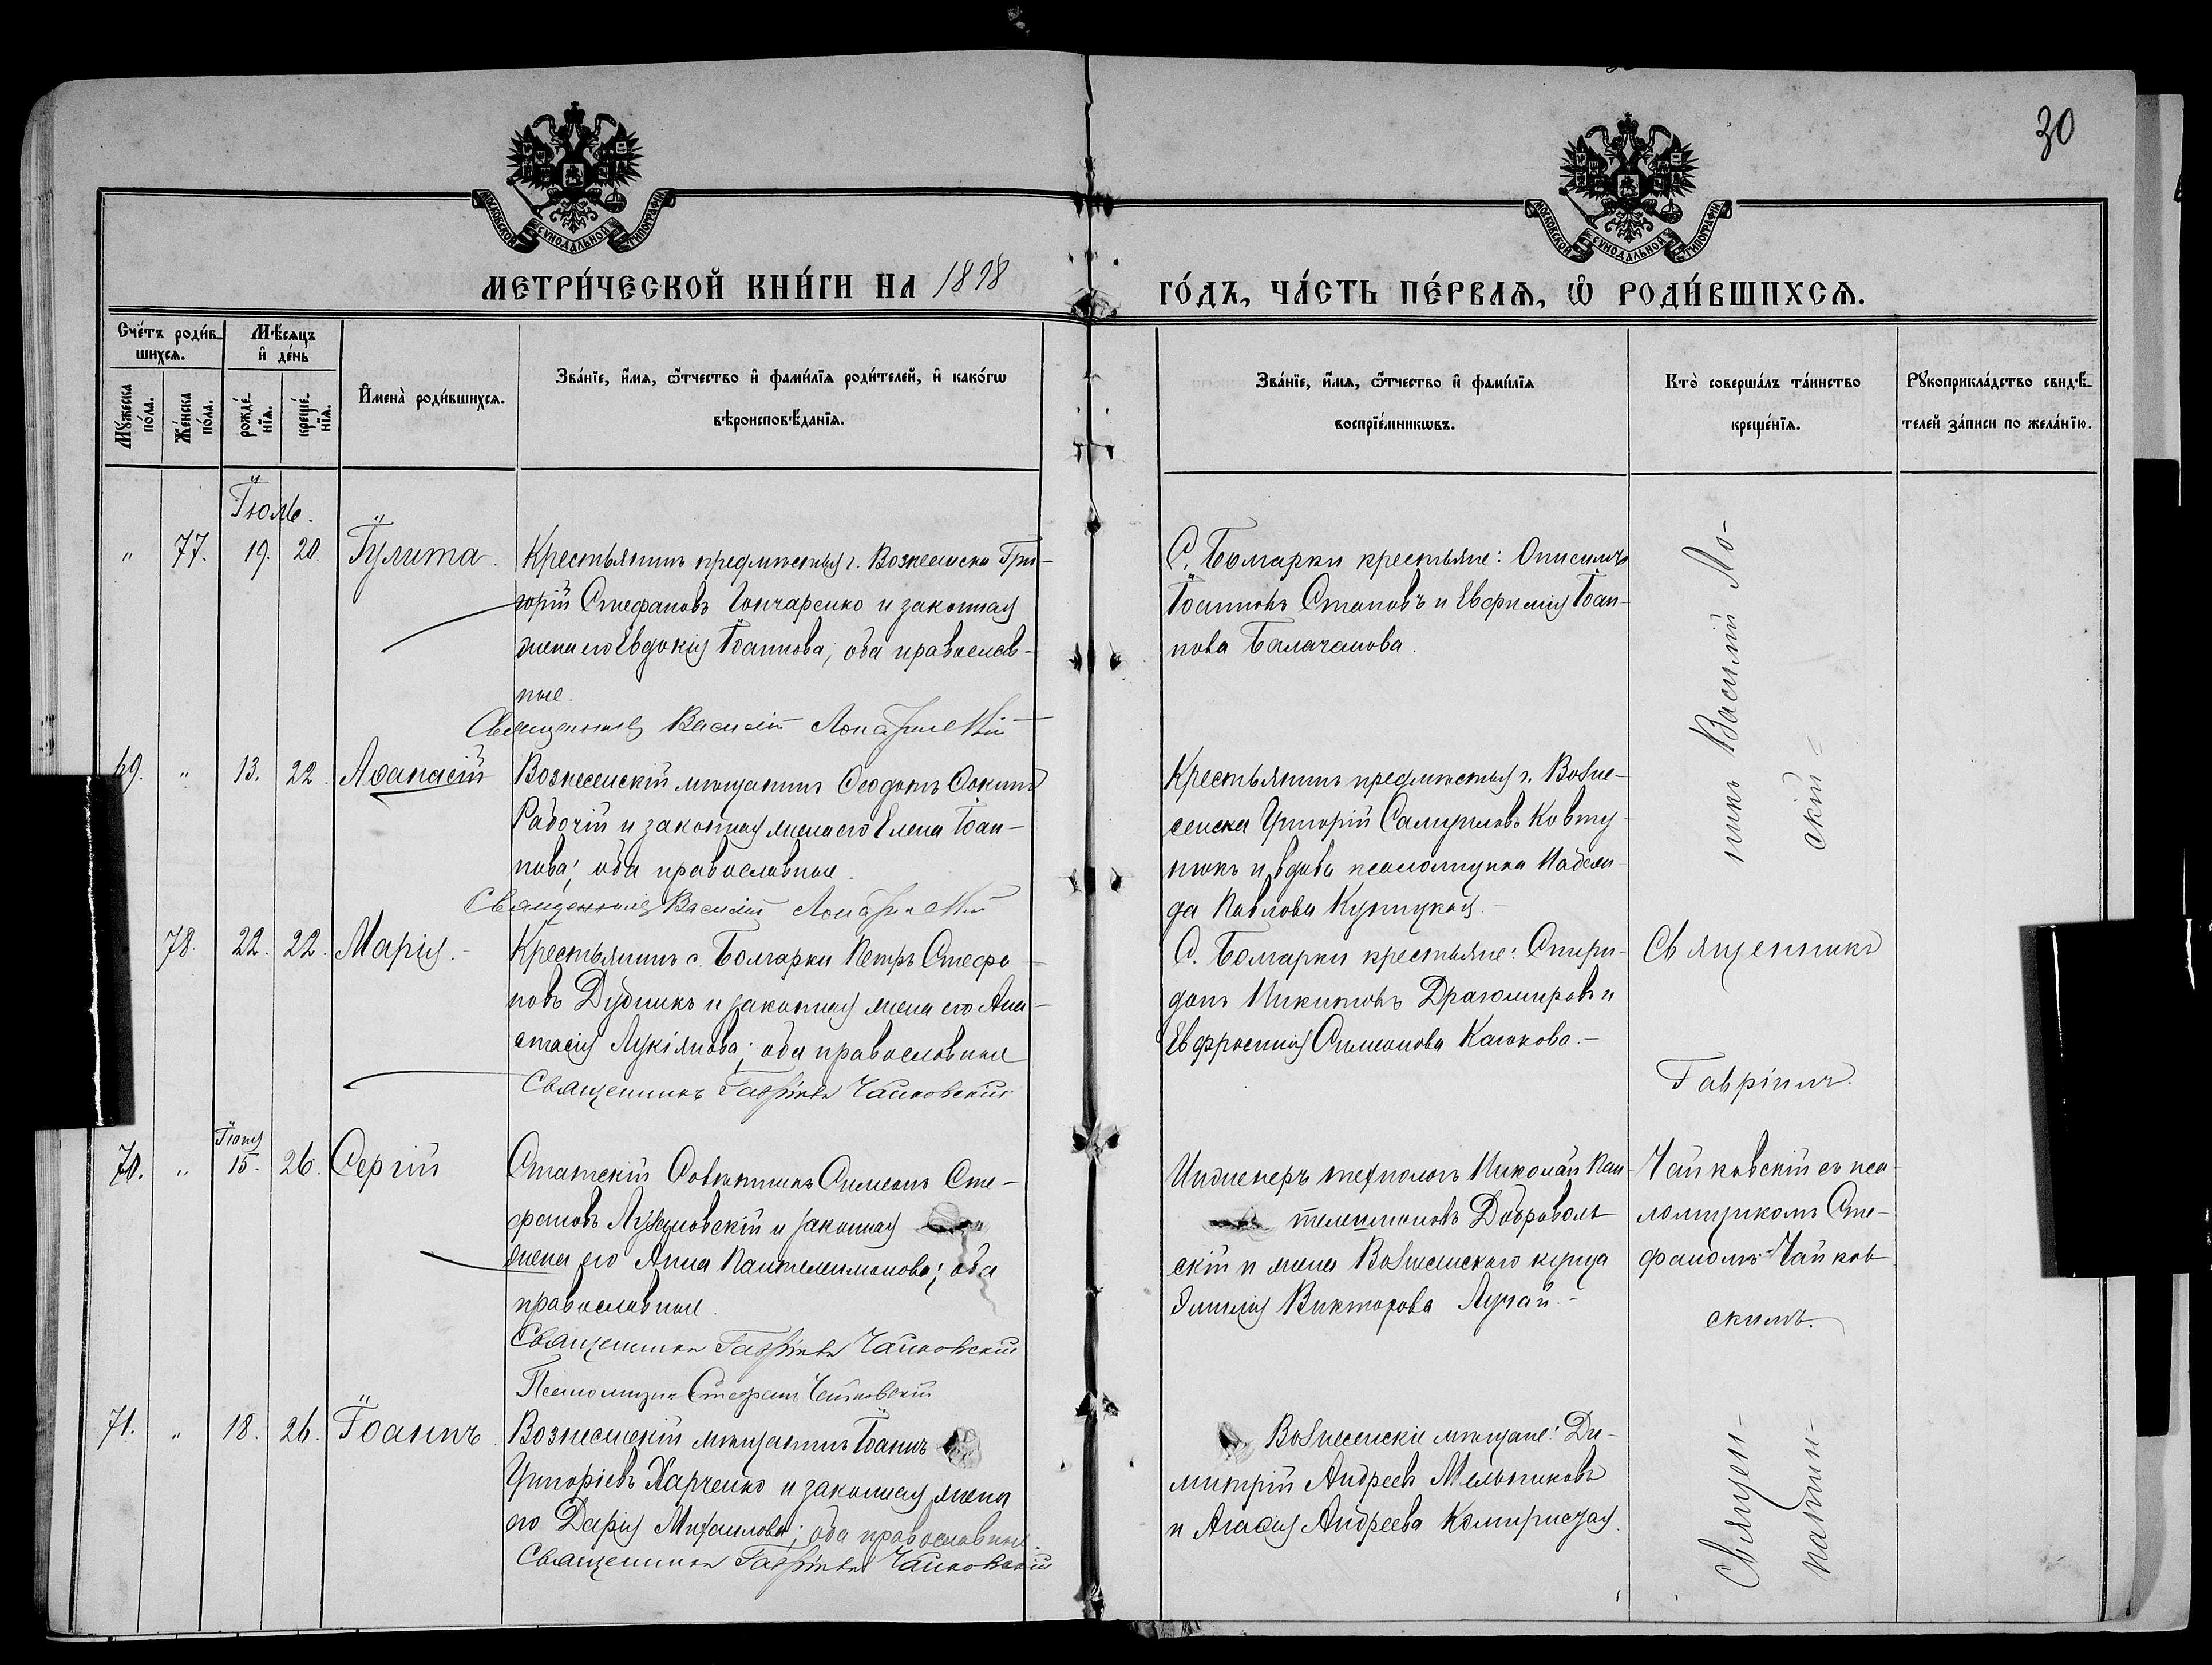 30
МОСКОВСКОЙ СѴНОДАЛЬНОЙ ТИПОГРАФІИ
МОСКОВСКОЙ СѴНОДАЛЬНОЙ ТИПОГРАФІИ
МЕТРИ́ЧЕСКОЙ КНИ́ГИ НА 1898
ГО́ДЪ, ЧА́СТЬ ПЕ́РВАѦ, Ѡ҆ РОДИ́ВШИХСѦ.
Сче́тъ роди́в-
шихсѧ.
Мꙋ́жеска по́ла.
Же́нска по́ла.
Мѣ́сѧцъ
и҆ де́нь
рожде́-
нїѧ.
креще́-
нїѧ.
И҆мена̀ роди́вшихсѧ.
Зва́нїе, и҆́мѧ, ѻ҆́тчество и҆ фами́лїѧ роди́телей, и҆ како́гѡ
вѣроисповѣ́данїѧ.
Зва́нїе, и҆́мѧ, ѻ҆́тчество и҆ фами́лїѧ
воспрїе́мникѡвъ.
Кто̀ соверша́лъ та́инство
креще́нїѧ.
Рꙋкоприкла́дство свидѣ́-
телей за́писи по жела́нїю.
Іюль.
" 77. 19. 20. Іулита.
Крестьянинъ предмѣстья г. Вознесенска Гри-
горій Стефановъ Гончаренко и законная
жена его Евдокія Іоаннова; оба православ-
ные.
Священникъ Василій
С. Болгарки крестьяне:
Іоанновъ Становъ и Евфимія Іоан-
нова Балачанова.
69. " 13. 22. Аѳанасій
Вознесенскій мѣщанинъ Ѳеодотъ
Рабочій и законная жена его Елена Іоан-
нова; оба православные.
Священникъ Василій
Крестьянинъ предмѣстья г. Возне-
сенска Григорій Самуиловъ Ковту-
нюкъ и вдова псаломщика Надеж-
да Павлова
никъ Василій Ло-
скій
78. 22. 22. Марія.
Крестьянинъ с. Болгарки Петръ Стефа-
новъ Дубникъ и законная жена его Ана-
стасія Лукіянова; оба православные
Священникъ Гавріилъ Чайковскій
С. Болгарки крестьяне: Спири-
донъ Никитовъ Драгомировъ и
Евфросинія Симеонова Каюкова.-
Священникъ
Гавріилъ
Чайковскій съ пса-
ломщикомъ Сте-
фаномъ Чайков-
скимъ.
Іюня
70. " 15. 26. Сергій
Статскій Совѣтникъ Симеонъ Сте-
фановъ и законная
жена его Анна Пантелеимонова; оба
православные.
Священникъ Гавріилъ Чайковскій
Псаломщикъ Стефанъ Чайковскій
Инженеръ технологъ Николай Пан-
телеимоновъ Доброволь-
скій и жена Вознесенскаго купца
Эмилія Викторова Лучай.-
71. " 18. 26. Іоаннъ.
Вознесенскій мѣщанинъ Іоаннъ
Григорьевъ Харченко и законная жена
его Дарія Михаилова; оба православные.
Священникъ Гавріилъ Чайковскій
Вознесенскіе мѣщане: Ди-
митрій Андреевъ Мельниковъ
и Агаѳія Андреева
Священ-